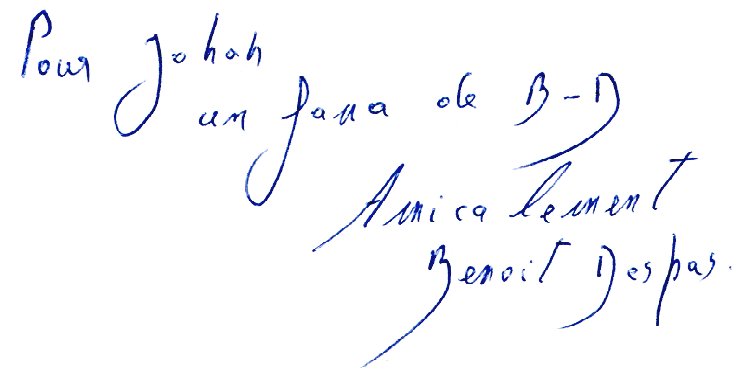 Pour Johan
un fana de B-D
Amicalement
Benoit Despas.